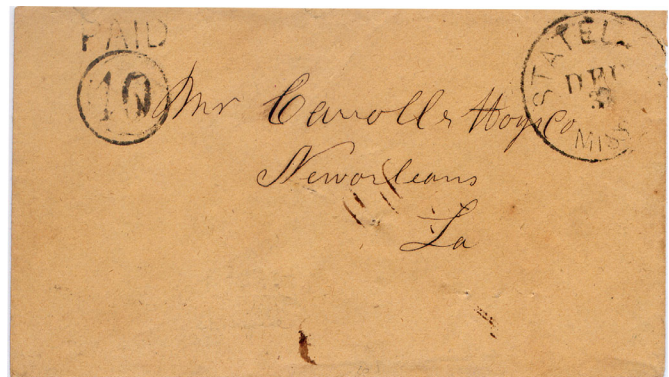 PAID
10
STATEL
DEC
MISS
Mr Carroll & Hoy & Co
Neworleans
La